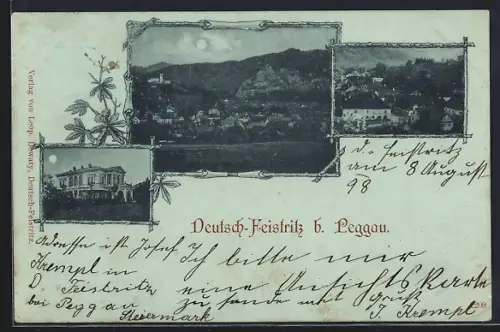 Verlag von Leop. Dewaty, Deutsch-Feistritz.
d. Feistritz
am 8 August
98
Deutsch-Feistritz b. Peggau.
Adresse ist Josef
Krempl in
D. Feistritz
bei Peggau
Steiermark
Ich bitte mir
eine Ansichtskarte
zu sende mit Gruß
J. Krempl